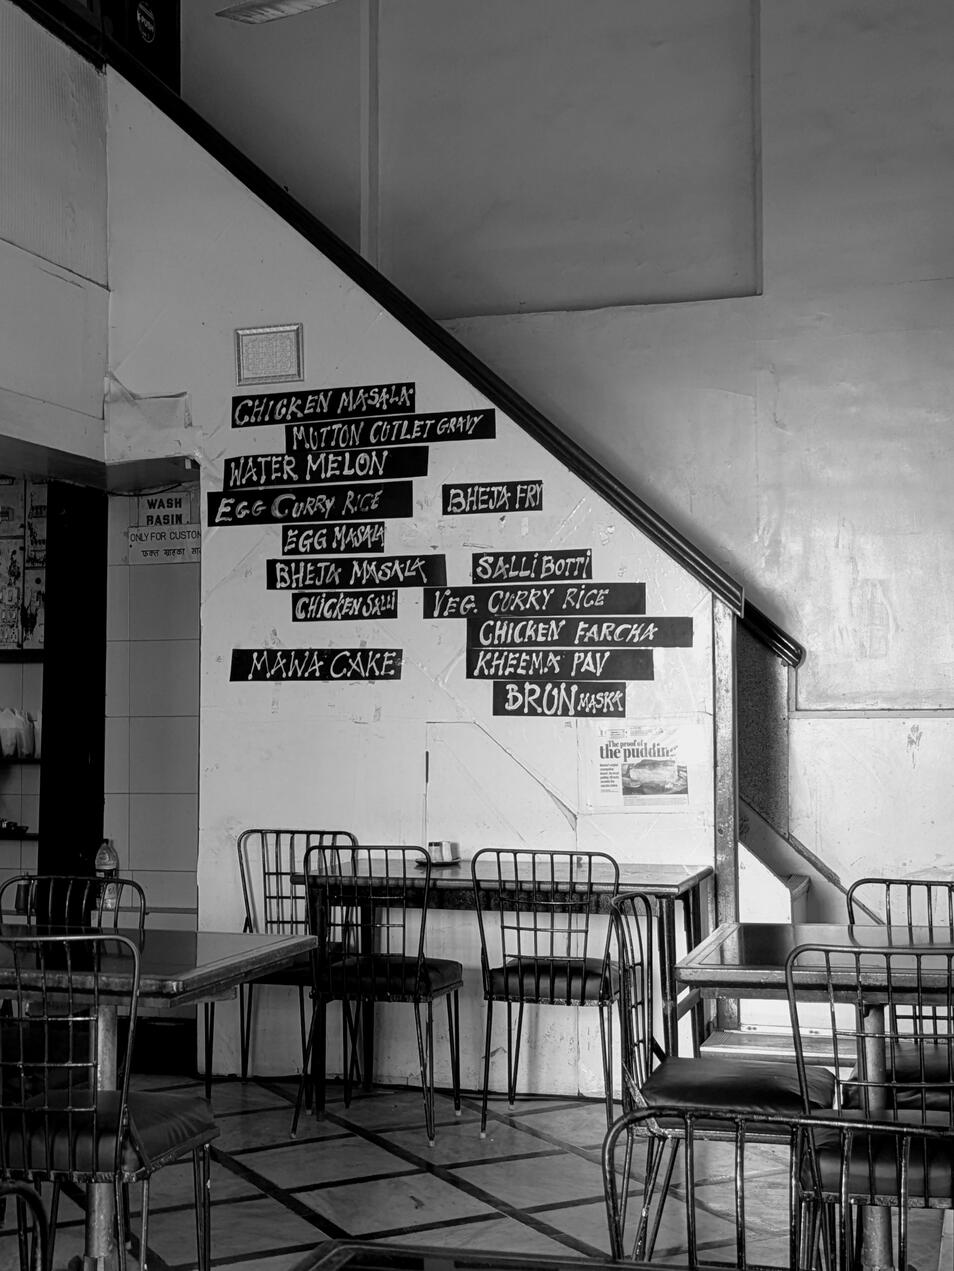 PUSH
CHICKEN MASALA
MUTTON CUTLET GRAVY
WATER MELON
EGG CURRY RICE
BHEJA FRY
EGG MASALA
BHEJA MASALA
SALLI BOTTI
CHICKEN SALLI
VEG. CURRY RICE
CHICKEN FARCHA
MAWA CAKE
KHEEMA PAV
BRUN MASKA
WASH
BASIN
ONLY FOR CUSTOM
फक्त ग्राहकां सा
The proof of
the pudding